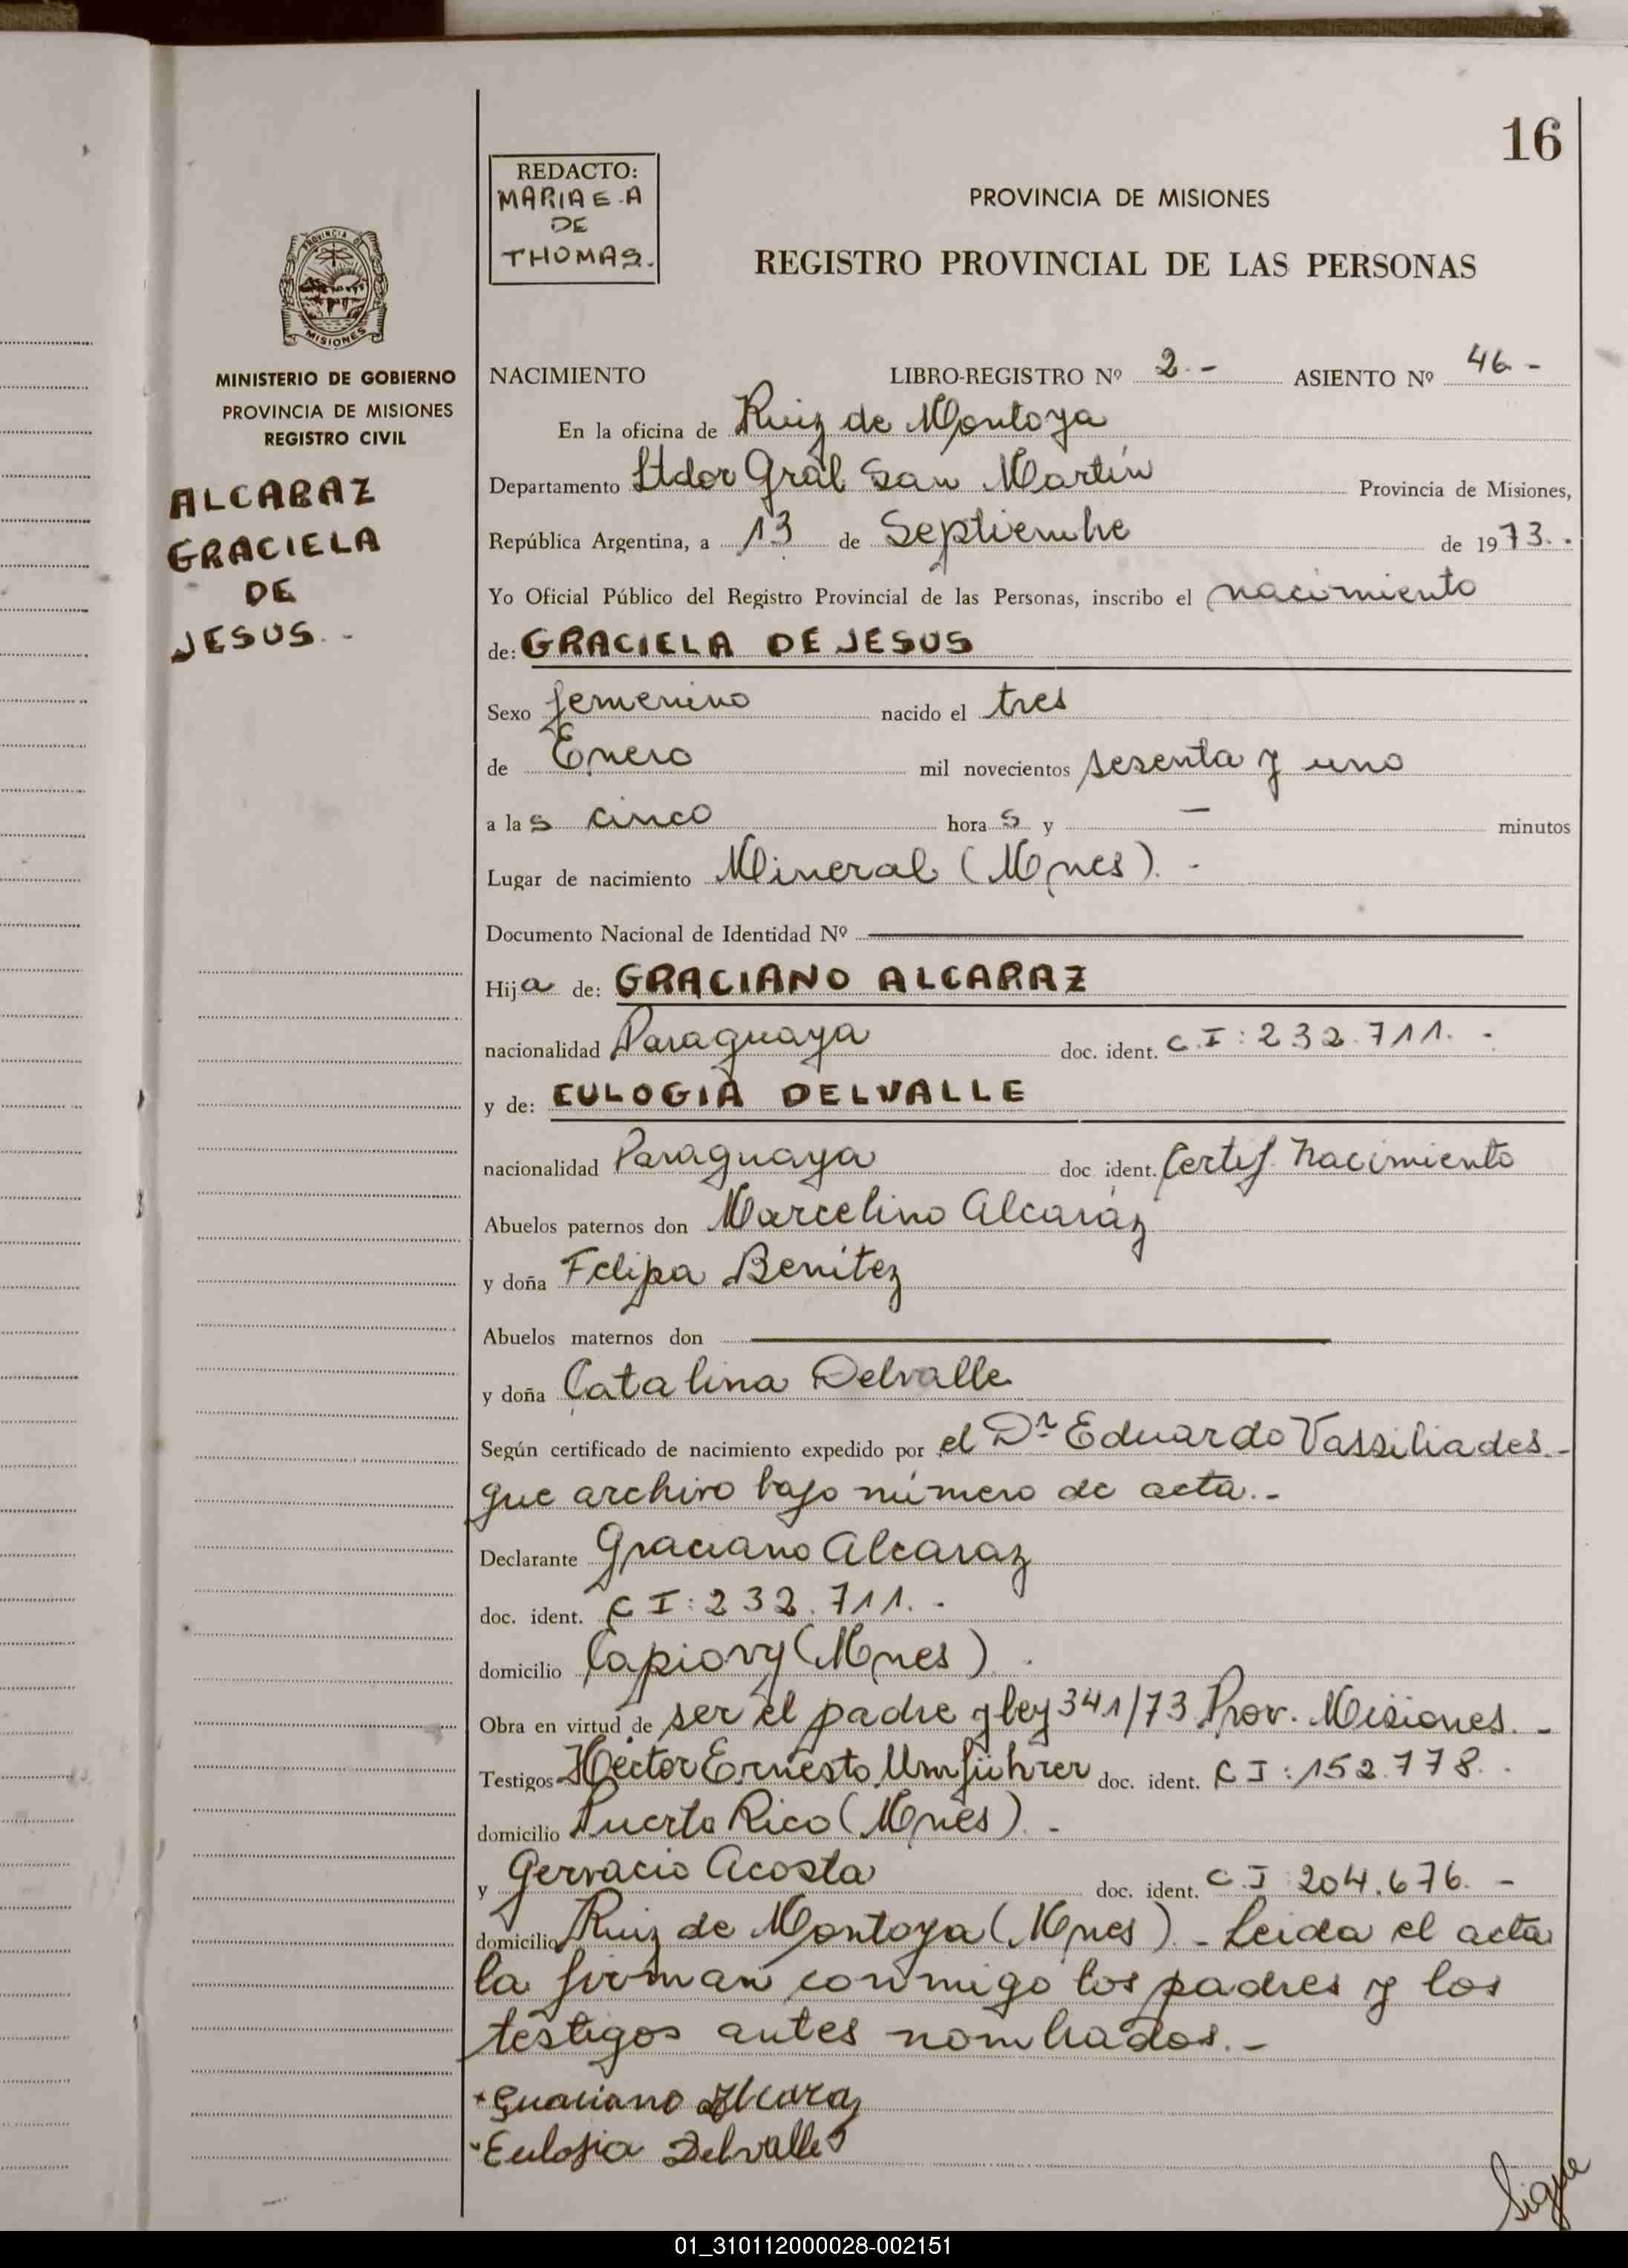 16
REDACTO:
MARIA E. A
DE
THOMAS.
PROVINCIA DE MISIONES
REGISTRO PROVINCIAL DE LAS PERSONAS
PROVINCIA DE
MISIONES
MINISTERIO DE GOBIERNO
PROVINCIA DE MISIONES
REGISTRO CIVIL
ALCARAZ
GRACIELA
DE
JESUS.-
NACIMIENTO LIBRO-REGISTRO Nº 2.- ASIENTO Nº 46-
En la oficina de Ruiz de Montoya
Departamento Ltdor Gral San Martín Provincia de Misiones,
República Argentina, a 13 de Septiembre de 1973..
Yo Oficial Público del Registro Provincial de las Personas, inscribo el nacimiento
de: GRACIELA DE JESUS
Sexo femenino nacido el tres
de Enero mil novecientos sesenta y uno
a las cinco horas y - minutos
Lugar de nacimiento Mineral (Mnes).-
Documento Nacional de Identidad Nº
Hija de: GRACIANO ALCARAZ
nacionalidad Paraguaya doc. ident. C.I: 232.711.-
y de: EULOGIA DELVALLE
nacionalidad Paraguaya doc. ident. Certif. Nacimiento
Abuelos paternos don Marcelino Alcaráz
y doña Felipa Benítez
Abuelos maternos don
y doña Catalina Delvalle
Según certificado de nacimiento expedido por el Dr Eduardo Vassiliades.-
que archivo bajo número de acta.-
Declarante Graciano Alcaraz
doc. ident. C I: 232.711.-
domicilio Capiovy (Mnes).
Obra en virtud de ser el padre y ley 341/73 Prov. Misiones.-
Testigos Hector Ernesto Umführer doc. ident. C I: 152.778..
domicilio Puerto Rico (Mnes).-
y Gervacio Acosta doc. ident. C.I 204.676.-
domicilio Ruiz de Montoya (Mnes).- Leida el acta
la firman conmigo los padres y los
testigos antes nombrados.-
Graciano Alcaraz
Eulogia Delvalle
Sigue
01_310112000028-002151